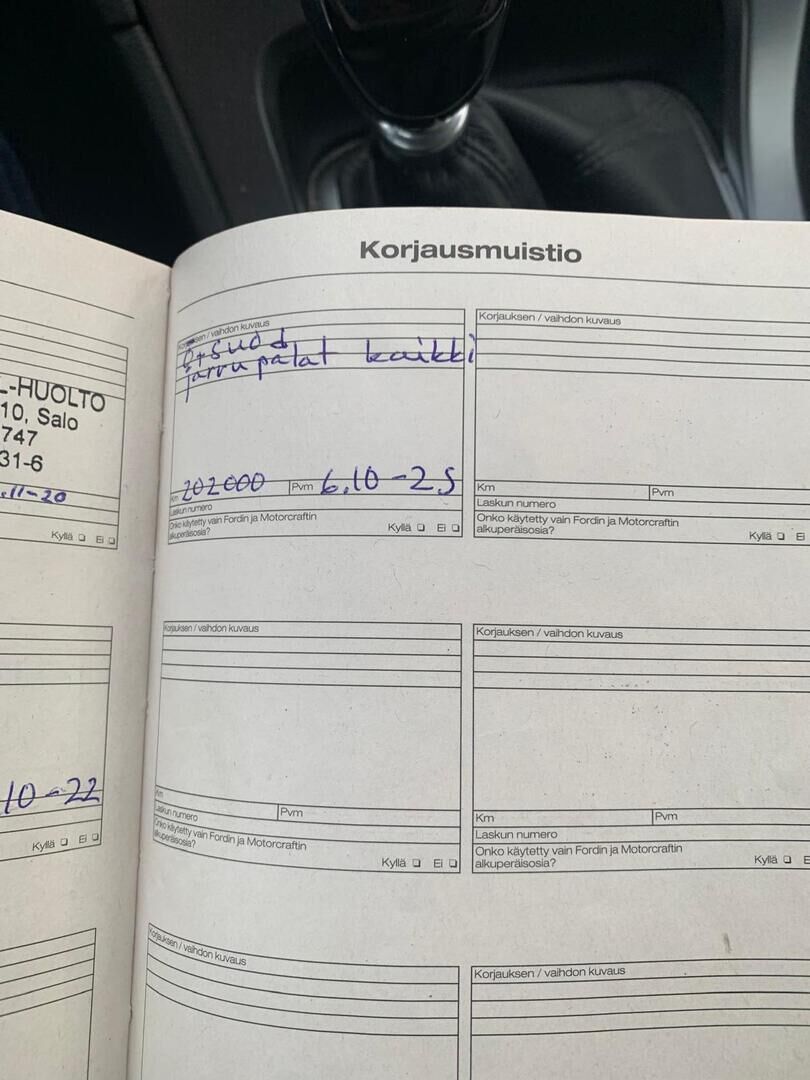 Korjausmuistio
L-HUOLTO
10, Salo
747
31-6
.11-20
Kyllä Ei
10-22
Kyllä Ei
Korjauksen / vaihdon kuvaus
Ö+Suod
jarrupalat kaikki
Km 202000 Pvm 6.10-25
Laskun numero
Onko käytetty vain Fordin ja Motorcraftin
alkuperäisosia? Kyllä Ei
Korjauksen / vaihdon kuvaus
Km Pvm
Laskun numero
Onko käytetty vain Fordin ja Motorcraftin
alkuperäisosia? Kyllä E
Korjauksen / vaihdon kuvaus
Km Pvm
Laskun numero
Onko käytetty vain Fordin ja Motorcraftin
alkuperäisosia? Kyllä Ei
Korjauksen / vaihdon kuvaus
Km Pvm
Laskun numero
Onko käytetty vain Fordin ja Motorcraftin
alkuperäisosia? Kyllä E
Korjauksen / vaihdon kuvaus
Korjauksen / vaihdon kuvaus